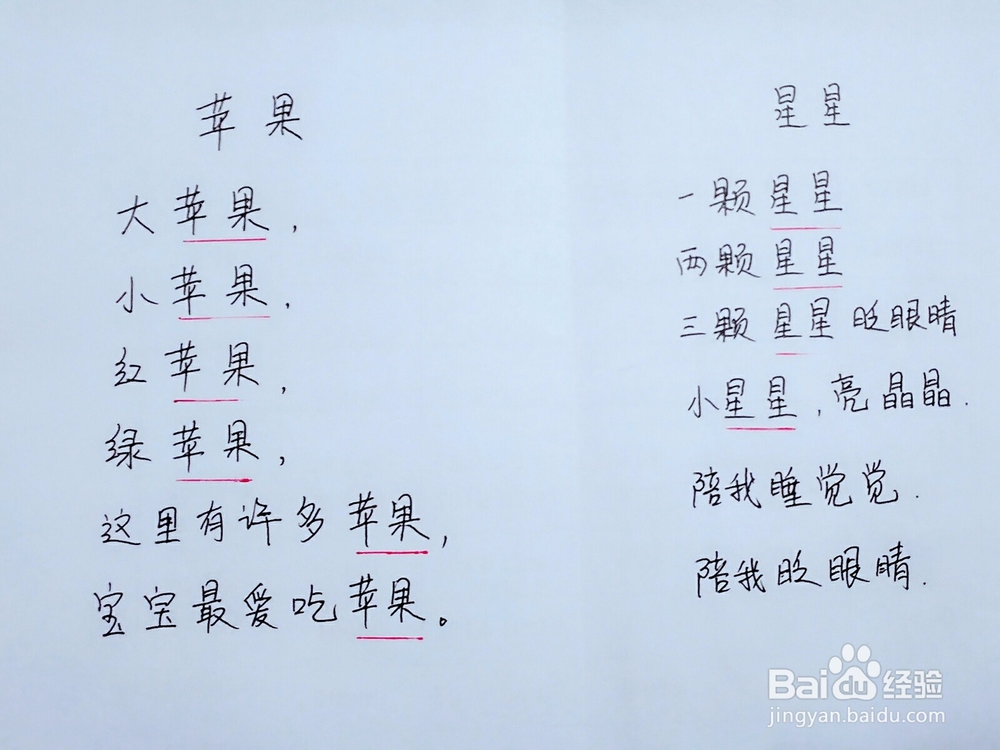 苹果
大苹果,
小苹果,
红苹果,
绿苹果,
这里有许多苹果,
宝宝最爱吃苹果。
星星
一颗星星
两颗星星
三颗星星眨眼睛
小星星,亮晶晶.
陪我睡觉觉.
陪我眨眼睛.
Baidu经验
jingyan.baidu.com